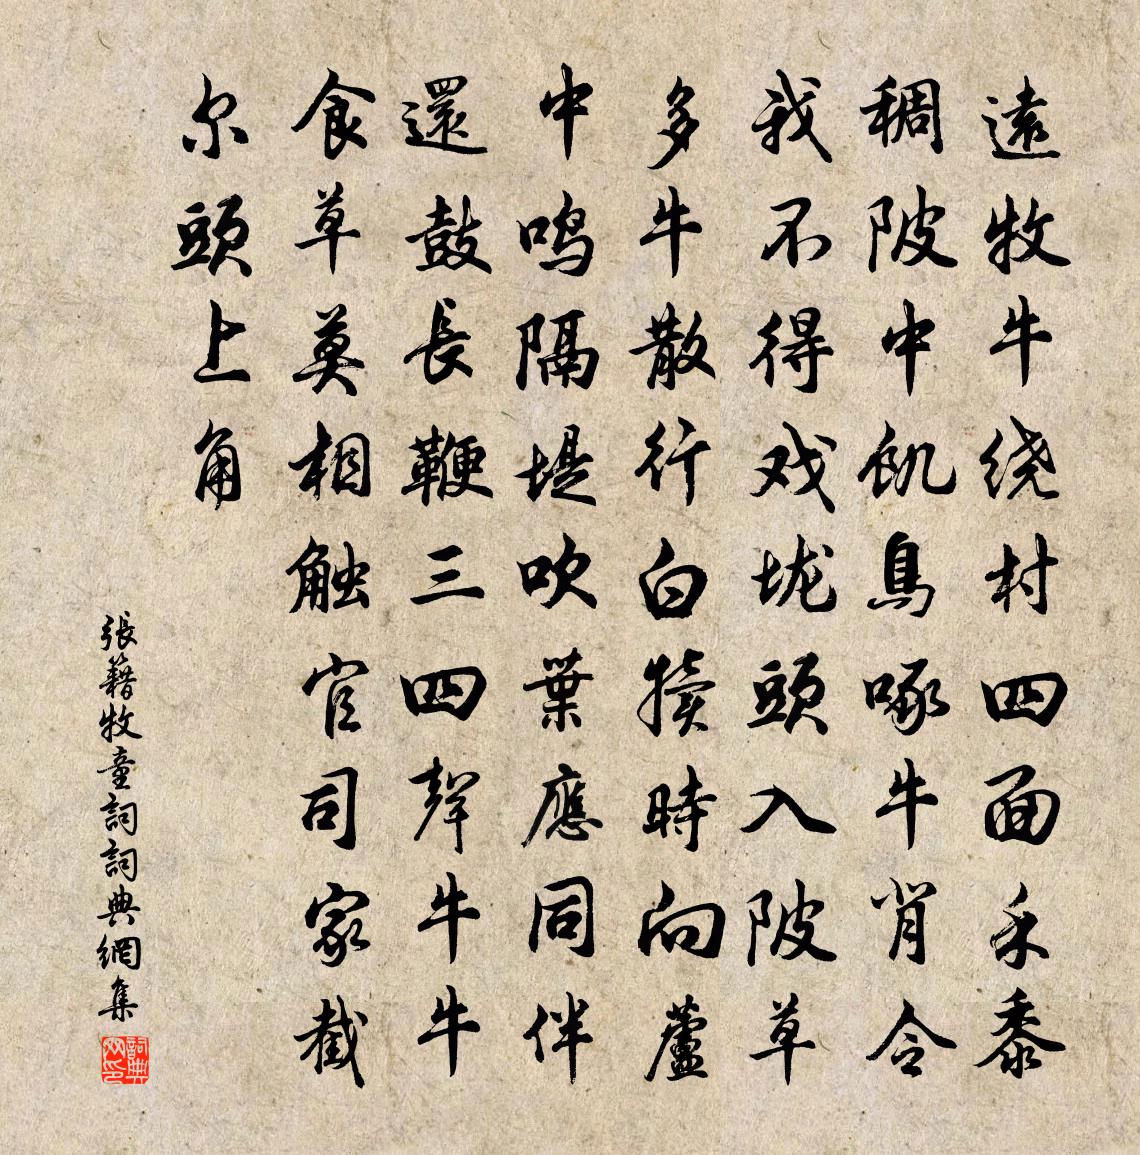 遠牧牛绕村四面禾黍
稠陂中飢鳥啄牛肖令
我不得戏垅頭入陂草
多牛散行白犢時向蘆
中鸣隔堤吹葉應同伴
還鼓長鞭三四聲牛牛
食草莫相触官司家截
尔頭上角
張籍牧童詞詞典網集
詞典网印